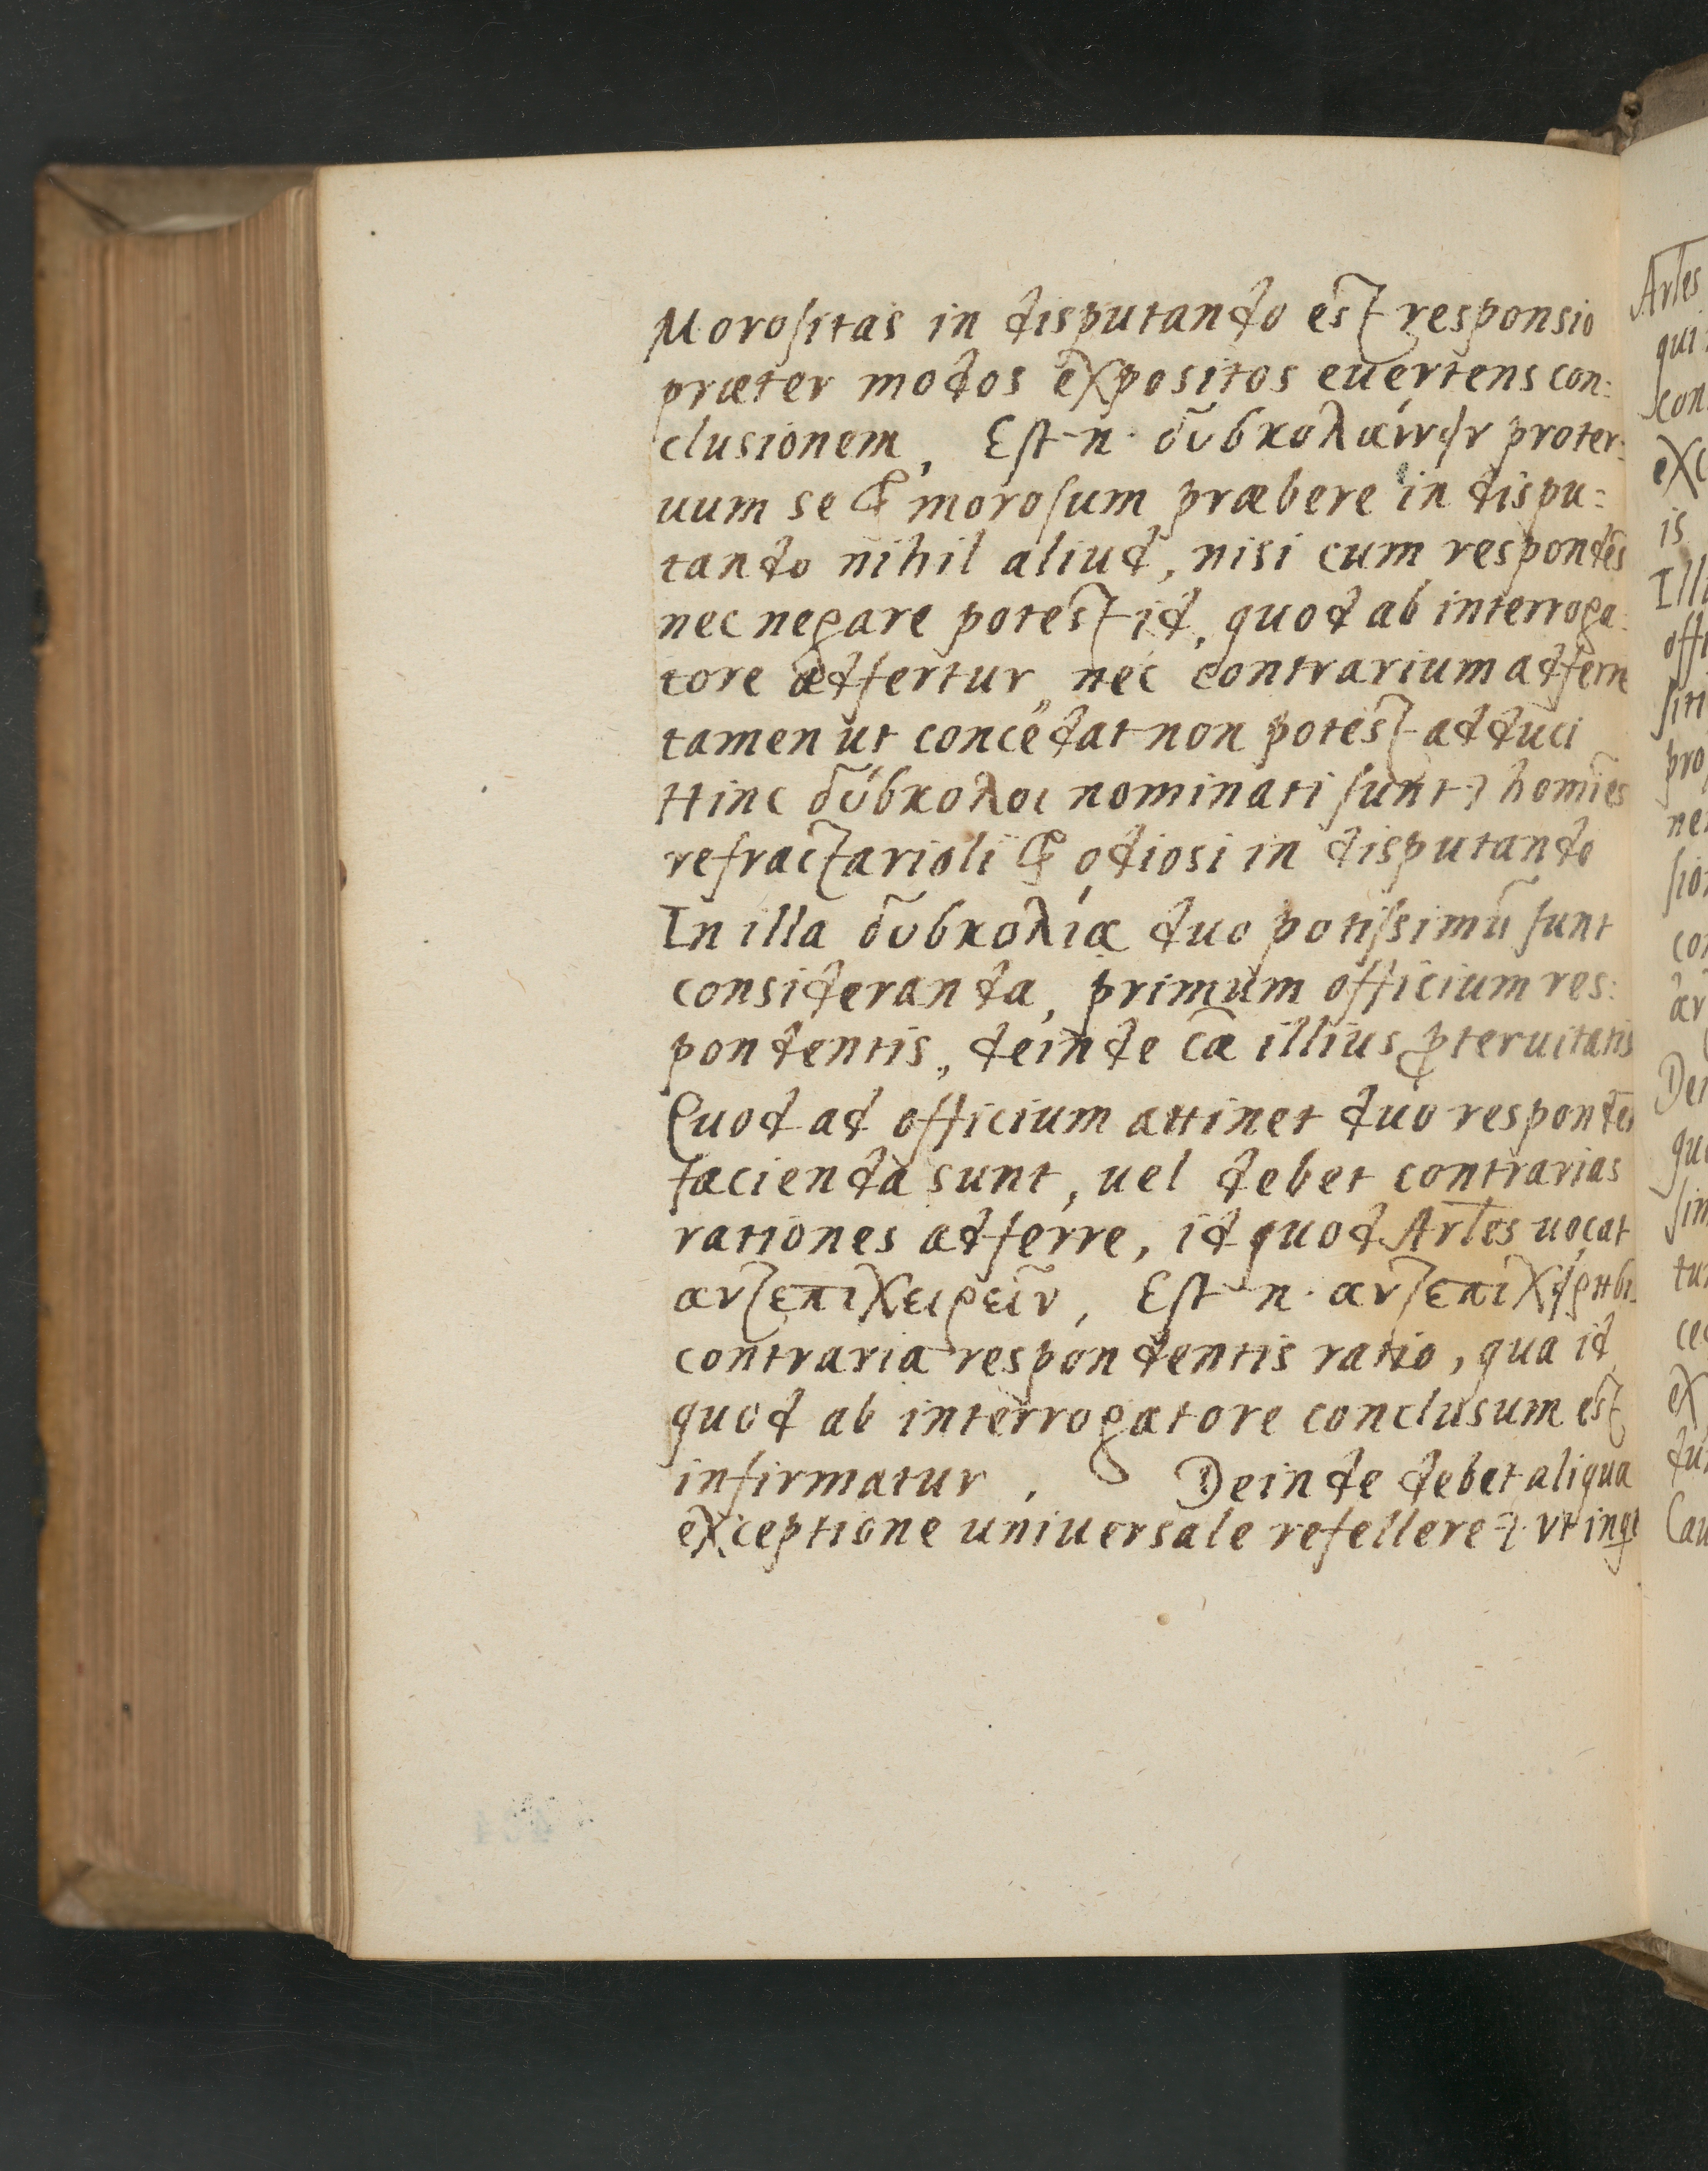 Morositas in disputando est responsio
præter modos expositos euertens con:
clusionem, Est n. δυσκολαίνειν proter:
uum se & morosum præbere in dispu:
tando nihil aliud, nisi cum respondēs
nec negare potest id, quod ab interroga:
tore adfertur, nec contrarium adferre
tamen ut concedat non potest adduci
Hinc δύσκολοι nominati sunt homīes
refractarioli & odiosi in disputando
In illa δυσκολία duo potissimū sunt
consideranda, primum officium res:
pondentis, deinde cā illius ꝓteruitatis
Quod ad officium attinet duo respondēti
facienda sunt, uel debet contrarias
rationes adferre, id quod Arles uocat
αντεπιχειρεῖν, Est n. αντεπιχείρησις
contraria respondentis ratio, qua id
quod ab interrogatore conclusum est
infirmatur, Deinde debet aliqua
exceptione uniuersale refellere vt
Arles
is